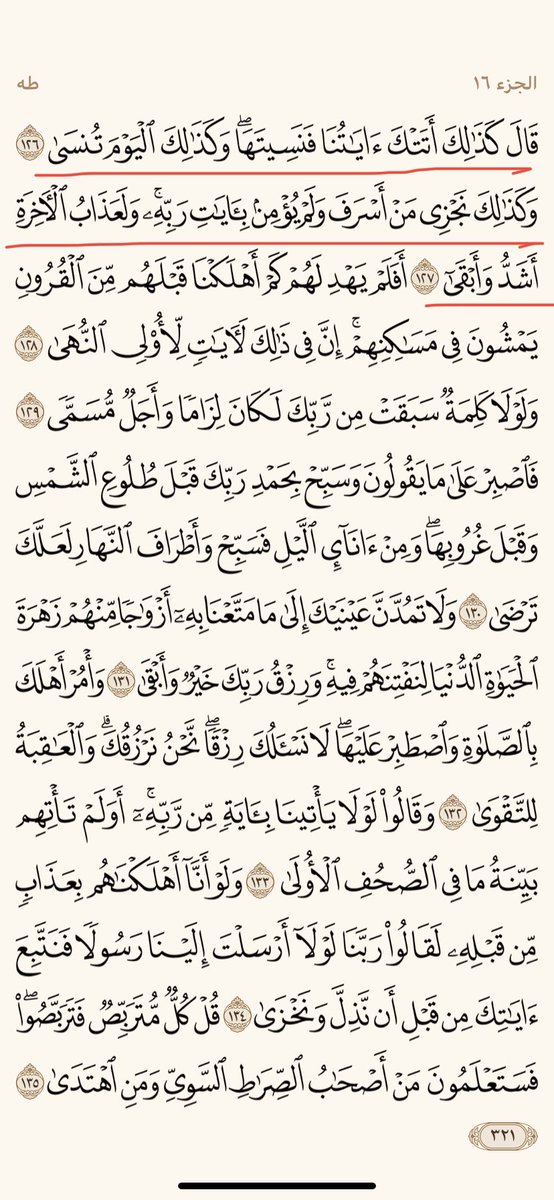 الجزء ١٦ طه
قَالَ كَذَٰلِكَ أَتَتْكَ ءَايَٰتُنَا فَنَسِيتَهَاۖ وَكَذَٰلِكَ ٱلْيَوْمَ تُنسَىٰ ١٢٦
وَكَذَٰلِكَ نَجْزِى مَنْ أَسْرَفَ وَلَمْ يُؤْمِنۢ بِـَٔايَٰتِ رَبِّهِۦۚ وَلَعَذَابُ ٱلْـَٔاخِرَةِ
أَشَدُّ وَأَبْقَىٰٓ ١٢٧ أَفَلَمْ يَهْدِ لَهُمْ كَمْ أَهْلَكْنَا قَبْلَهُم مِّنَ ٱلْقُرُونِ
يَمْشُونَ فِى مَسَٰكِنِهِمْۗ إِنَّ فِى ذَٰلِكَ لَـَٔايَٰتٍ لِّأُو۟لِى ٱلنُّهَىٰ ١٢٨
وَلَوْلَا كَلِمَةٌ سَبَقَتْ مِن رَّبِّكَ لَكَانَ لِزَامًا وَأَجَلٌ مُّسَمًّى ١٢٩
فَٱصْبِرْ عَلَىٰ مَا يَقُولُونَ وَسَبِّحْ بِحَمْدِ رَبِّكَ قَبْلَ طُلُوعِ ٱلشَّمْسِ
وَقَبْلَ غُرُوبِهَاۖ وَمِنْ ءَانَآئِ ٱلَّيْلِ فَسَبِّحْ وَأَطْرَافَ ٱلنَّهَارِ لَعَلَّكَ
تَرْضَىٰ ١٣٠ وَلَا تَمُدَّنَّ عَيْنَيْكَ إِلَىٰ مَا مَتَّعْنَا بِهِۦٓ أَزْوَٰجًا مِّنْهُمْ زَهْرَةَ
ٱلْحَيَوٰةِ ٱلدُّنْيَا لِنَفْتِنَهُمْ فِيهِۚ وَرِزْقُ رَبِّكَ خَيْرٌ وَأَبْقَىٰ ١٣١ وَأْمُرْ أَهْلَكَ
بِٱلصَّلَوٰةِ وَٱصْطَبِرْ عَلَيْهَاۖ لَا نَسْـَٔلُكَ رِزْقًاۖ نَّحْنُ نَرْزُقُكَۗ وَٱلْعَٰقِبَةُ
لِلتَّقْوَىٰ ١٣٢ وَقَالُوا۟ لَوْلَا يَأْتِينَا بِـَٔايَةٍ مِّن رَّبِّهِۦٓۚ أَوَلَمْ تَأْتِهِم
بَيِّنَةُ مَا فِى ٱلصُّحُفِ ٱلْأُولَىٰ ١٣٣ وَلَوْ أَنَّآ أَهْلَكْنَٰهُم بِعَذَابٍ
مِّن قَبْلِهِۦ لَقَالُوا۟ رَبَّنَا لَوْلَآ أَرْسَلْتَ إِلَيْنَا رَسُولًا فَنَتَّبِعَ
ءَايَٰتِكَ مِن قَبْلِ أَن نَّذِلَّ وَنَخْزَىٰ ١٣٤ قُلْ كُلٌّ مُّتَرَبِّصٌ فَتَرَبَّصُوا۟ۖ
فَسَتَعْلَمُونَ مَنْ أَصْحَٰبُ ٱلصِّرَٰطِ ٱلسَّوِىِّ وَمَنِ ٱهْتَدَىٰ ١٣٥
٣٢١